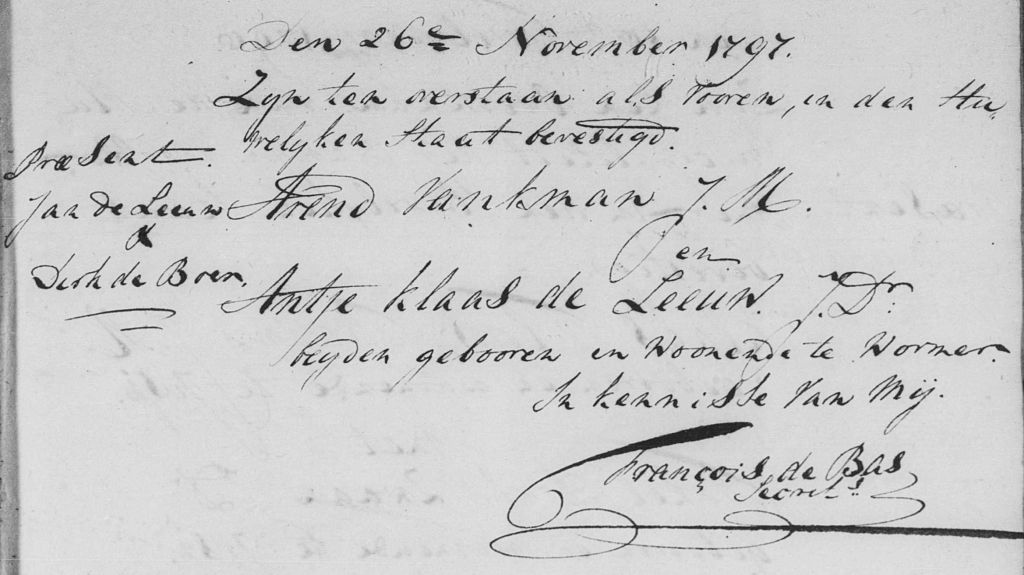 Den 26e November 1797.
Zyn ten overstaan als vooren, in den Hu,
welyken Staat bevestigd.
Præsent.
Jan de Leeuw
&
Dirk de Boer.
Arend Vankman J. M.
en
Antje Klaas de Leeuw. J. Dr.
beyden gebooren en Woonende te Wormer.
In kennisse Van Mij.
François de Bas
Secrets.